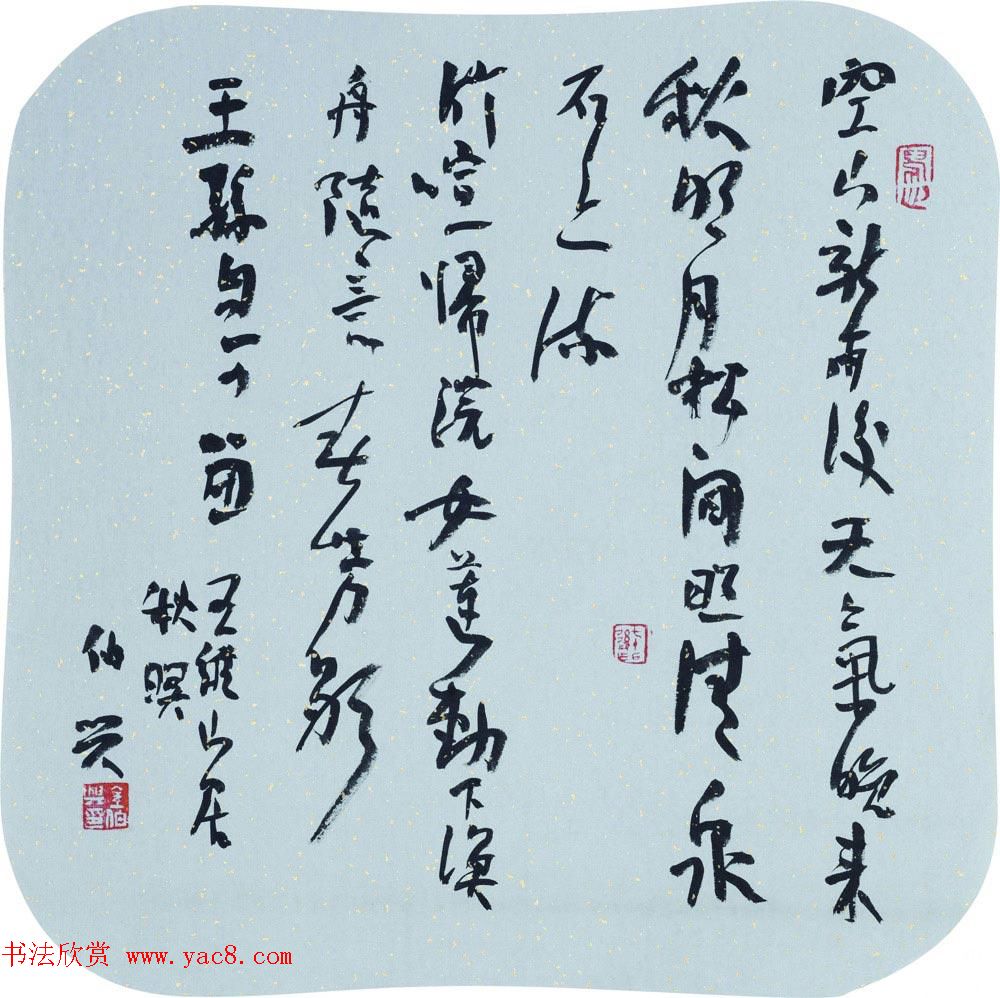 空山新雨後天氣晚来
秋明月松间照清泉
石上流
竹喧歸浣女蓮動下漁
舟随意春芳歇
王孫自可留
王維山居
秋暝
伯兴
书法欣赏 www.yac8.com